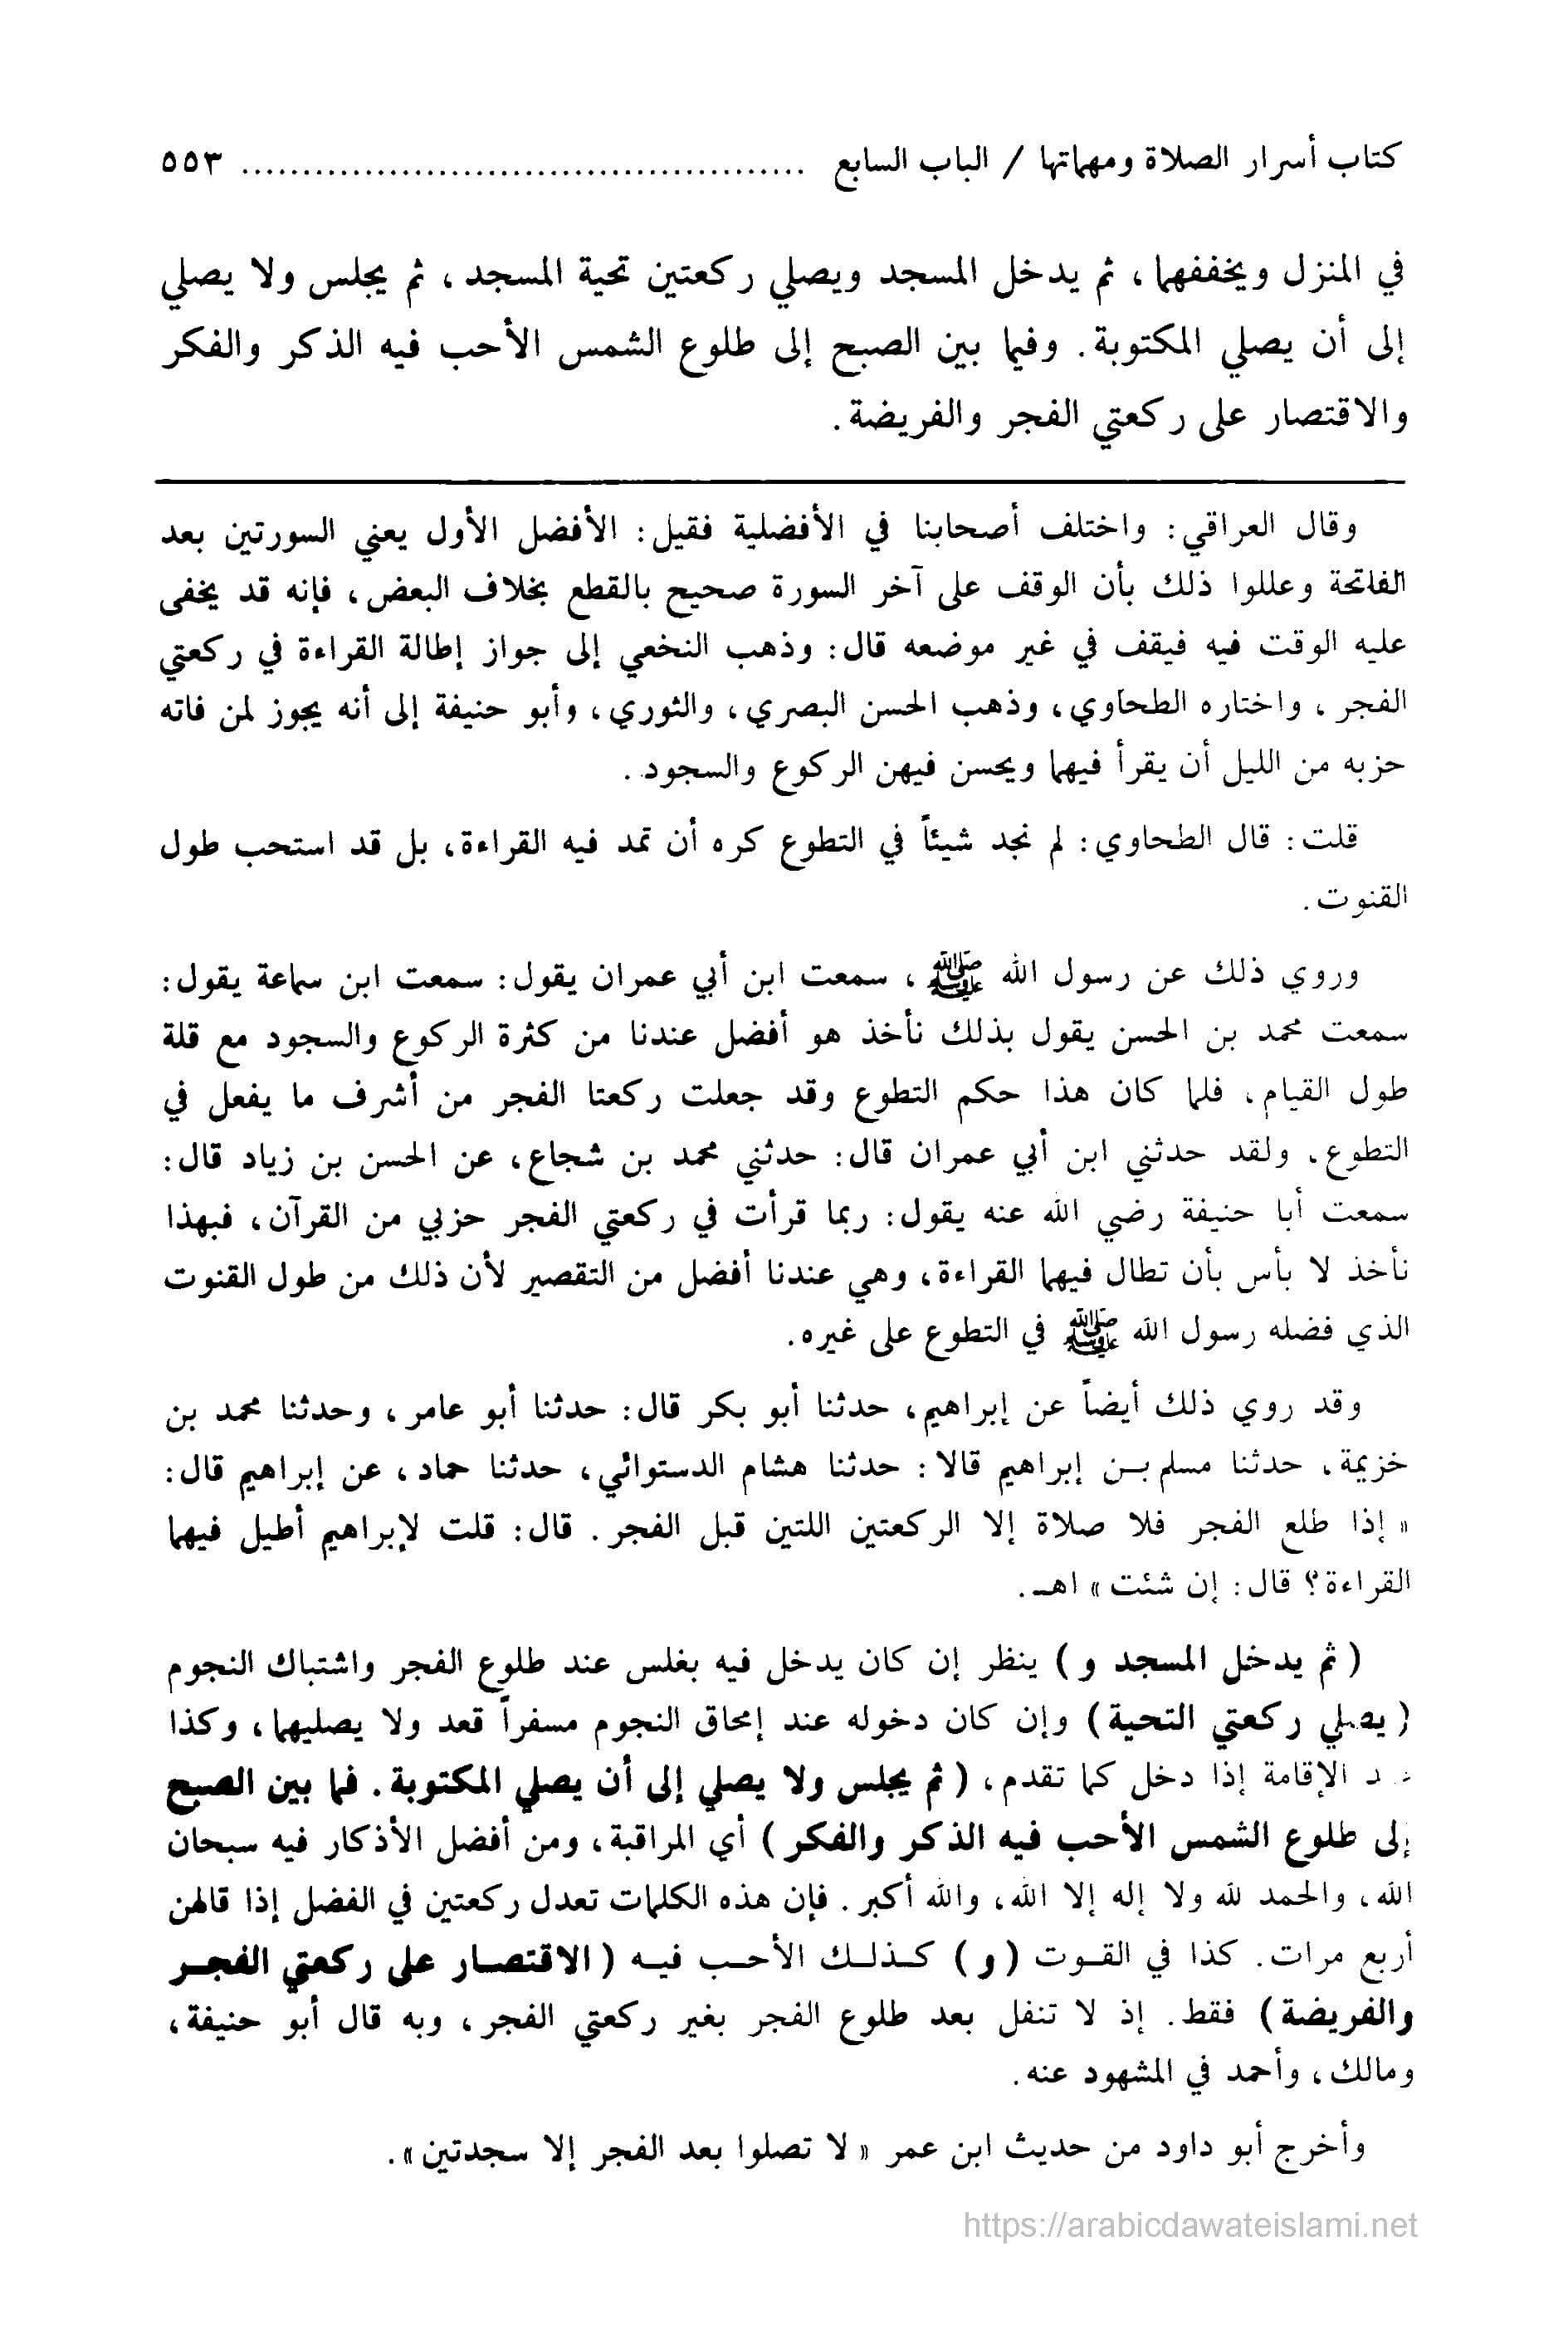 كتاب أسرار الصلاة ومهماتها / الباب السابع ............................................... ٥٥٣
في المنزل ويخففهما، ثم يدخل المسجد ويصلي ركعتين تحية المسجد، ثم يجلس ولا يصلي
إلى أن يصلي المكتوبة. وفيما بين الصبح إلى طلوع الشمس الأحب فيه الذكر والفكر
والاقتصار على ركعتي الفجر والفريضة.
وقال العراقي: واختلف أصحابنا في الأفضلية فقيل: الأفضل الأول يعني السورتين بعد
الفاتحة وعللوا ذلك بأن الوقف على آخر السورة صحيح بالقطع بخلاف البعض، فإنه قد يخفى
عليه الوقت فيه فيقف في غير موضعه قال: وذهب النخعي إلى جواز إطالة القراءة في ركعتي
الفجر، واختاره الطحاوي، وذهب الحسن البصري، والثوري، وأبو حنيفة إلى أنه يجوز لمن فاته
حزبه من الليل أن يقرأ فيهما ويحسن فيهن الركوع والسجود.
قلت: قال الطحاوي: لم نجد شيئاً في التطوع كره أن تمد فيه القراءة، بل قد استحب طول
القنوت.
وروي ذلك عن رسول الله ﷺ، سمعت ابن أبي عمران يقول: سمعت ابن سماعة يقول:
سمعت محمد بن الحسن يقول بذلك نأخذ هو أفضل عندنا من كثرة الركوع والسجود مع قلة
طول القيام، فلما كان هذا حكم التطوع وقد جعلت ركعتا الفجر من أشرف ما يفعل في
التطوع، ولقد حدثني ابن أبي عمران قال: حدثني محمد بن شجاع، عن الحسن بن زياد قال:
سمعت أبا حنيفة رضي الله عنه يقول: ربما قرأت في ركعتي الفجر حزبي من القرآن، فبهذا
نأخذ لا بأس بأن تطال فيهما القراءة، وهي عندنا أفضل من التقصير لأن ذلك من طول القنوت
الذي فضله رسول الله ﷺ في التطوع على غيره.
وقد روي ذلك أيضاً عن إبراهيم، حدثنا أبو بكر قال: حدثنا أبو عامر، وحدثنا محمد بن
خزيمة، حدثنا مسلم بن إبراهيم قالا: حدثنا هشام الدستوائي، حدثنا حماد، عن إبراهيم قال:
« إذا طلع الفجر فلا صلاة إلا الركعتين اللتين قبل الفجر. قال: قلت لإبراهيم أطيل فيهما
القراءة؟ قال: إن شئت» اهـ.
(ثم يدخل المسجد و) ينظر إن كان يدخل فيه بغلس عند طلوع الفجر واشتباك النجوم
(يصلي ركعتي التحية) وإن كان دخوله عند إمحاق النجوم مسفراً قعد ولا يصليهما، وكذا
د الإقامة إذا دخل كما تقدم، (ثم يجلس ولا يصلي إلى أن يصلي المكتوبة. فما بين الصبح
إلى طلوع الشمس الأحب فيه الذكر والفكر) أي المراقبة، ومن أفضل الأذكار فيه سبحان
الله، والحمد لله ولا إله إلا الله، والله أكبر. فإن هذه الكلمات تعدل ركعتين في الفضل إذا قالهن
أربع مرات. كذا في القوت (و) كذلك الأحب فيه (الاقتصار على ركعتي الفجر
والفريضة) فقط. إذ لا تنفل بعد طلوع الفجر بغير ركعتي الفجر، وبه قال أبو حنيفة،
ومالك، وأحمد في المشهود عنه.
وأخرج أبو داود من حديث ابن عمر « لا تصلوا بعد الفجر إلا سجدتين».
https://arabicdawateislami.net